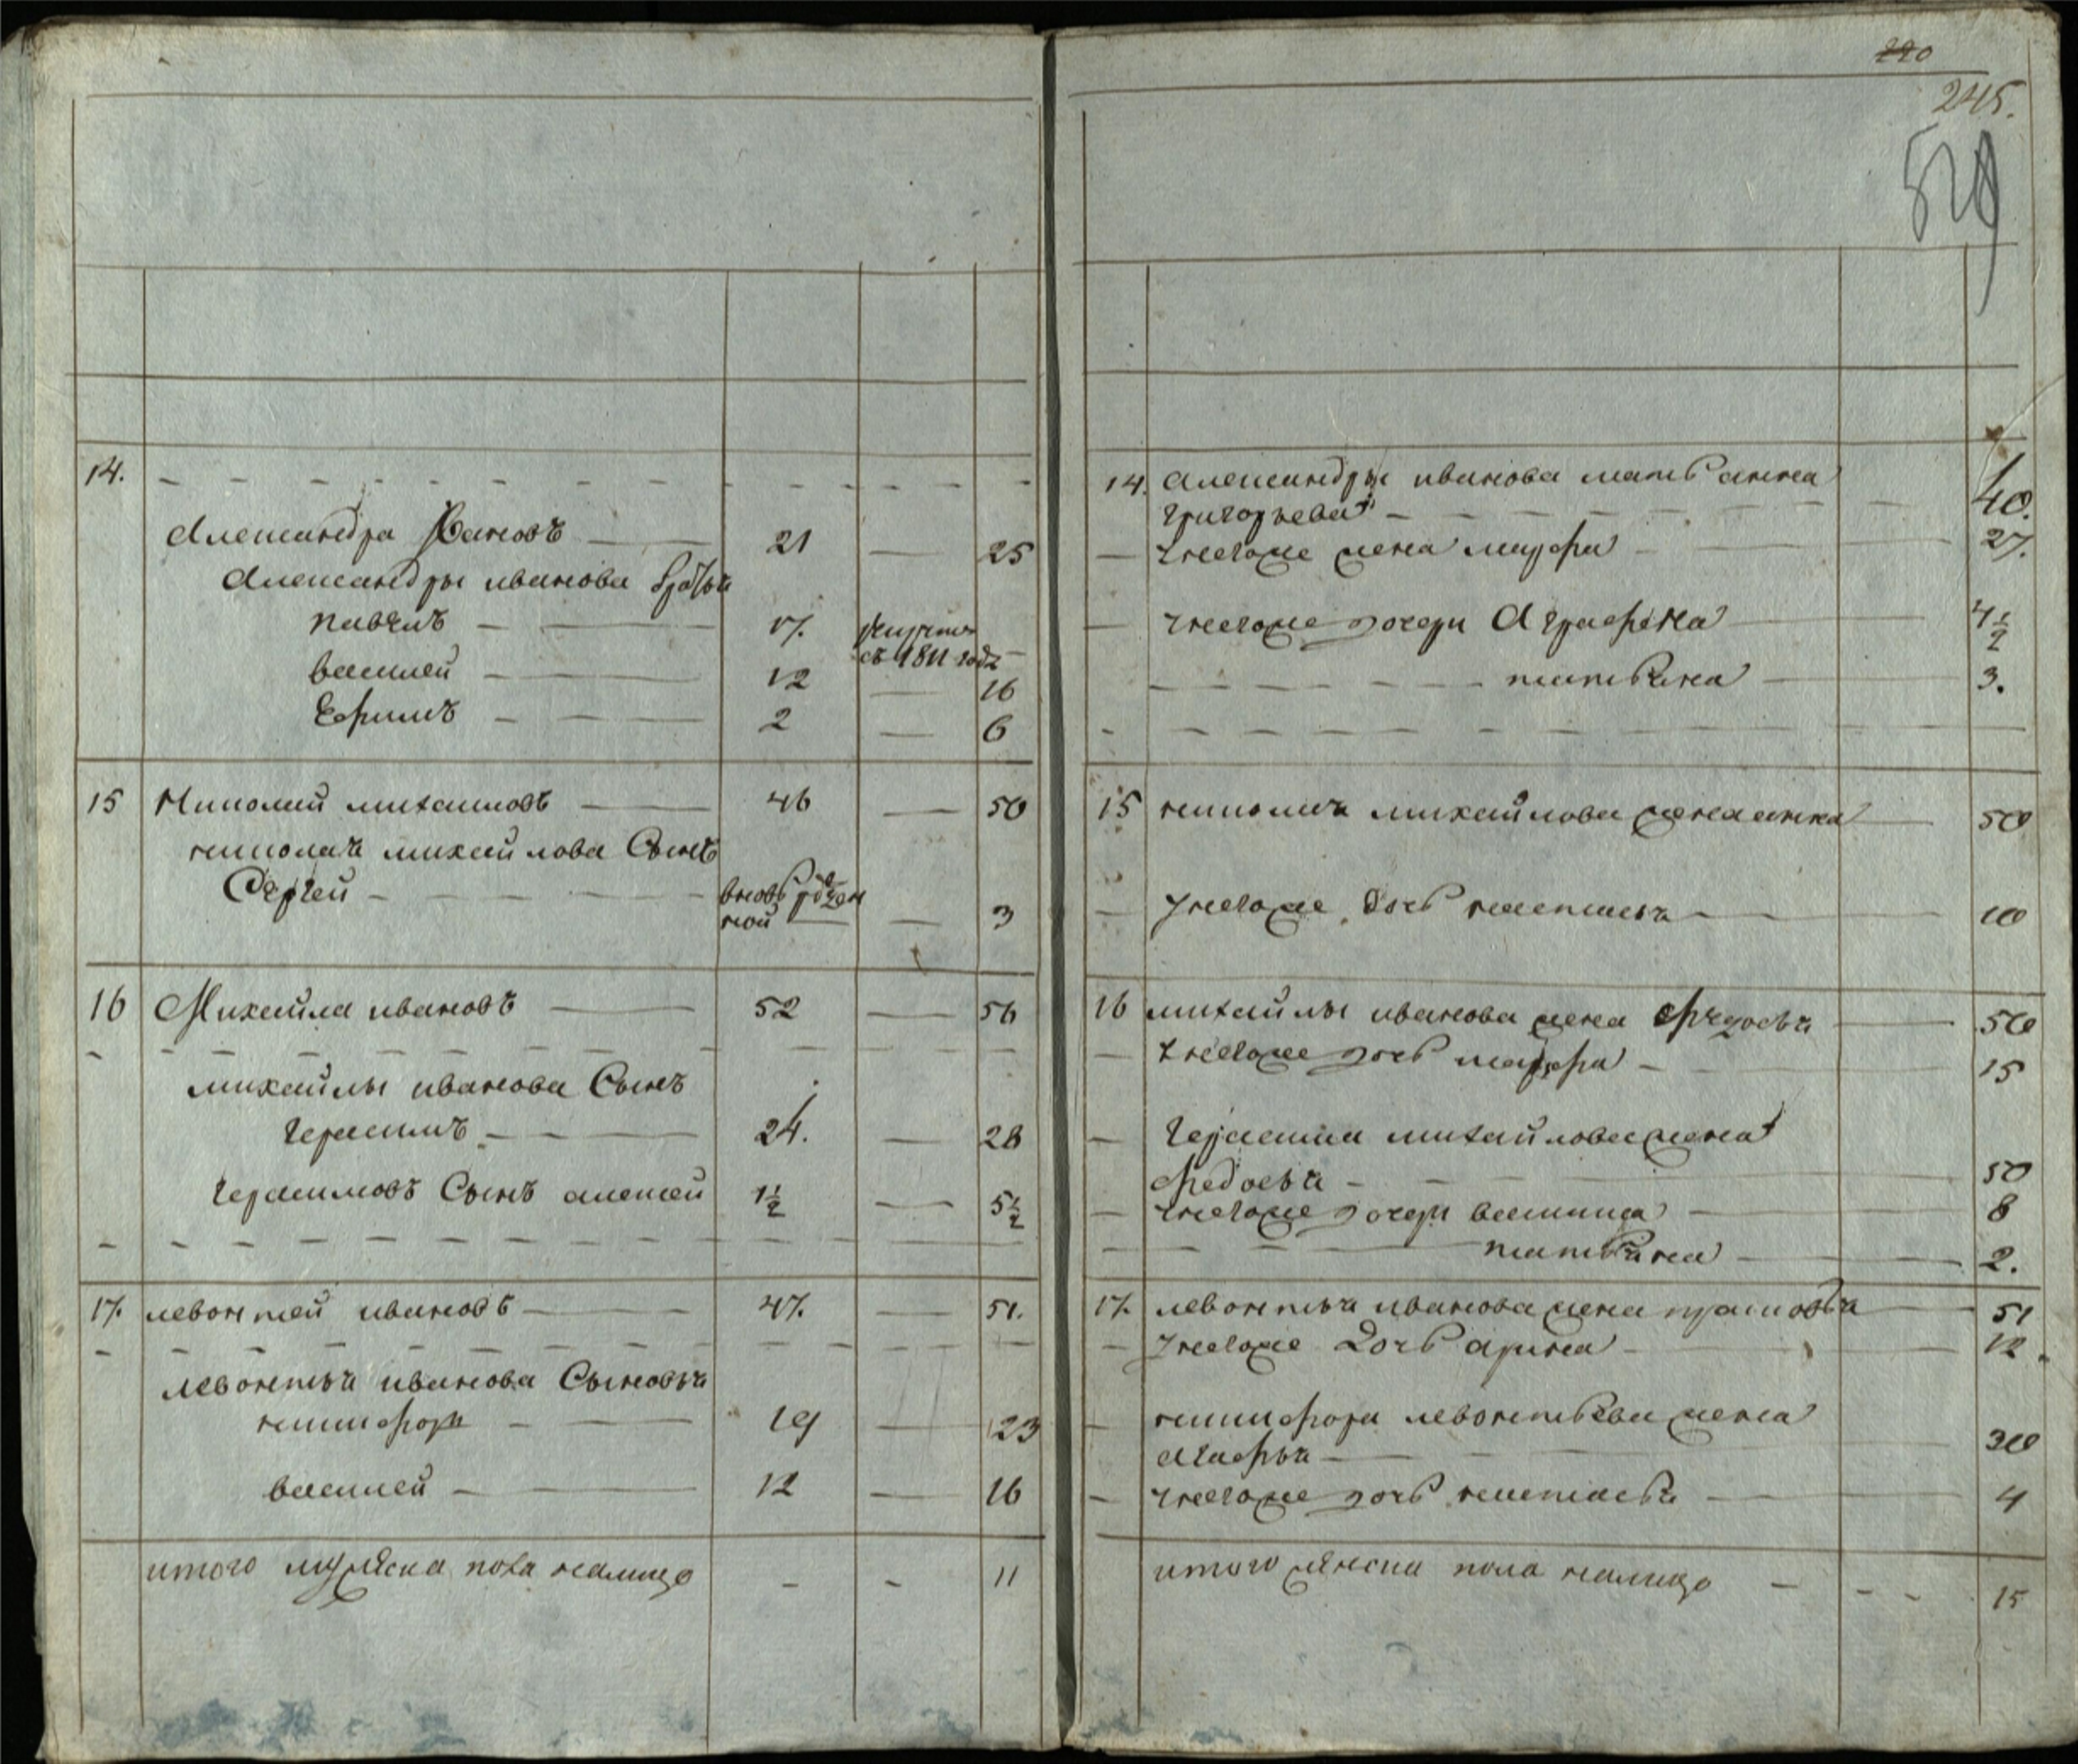 14.
Александра Ивановъ 21 25
Александры иванова братья
павелъ 17. рекрутъ
въ 1811 году
василей 12 16
Ефимъ 2 6
15 Николай михаиловъ 46 50
николая михайлова Сынъ
Сергей вновь рожден
ной 3
16 Михаила ивановъ 52 56
михаилы иванова Сынъ
герасимъ 24. 28
герасимовъ Сынъ алексей 1 1/2 5 1/2
17. левонтей ивановъ 47. 51.
левонтья иванова Сыновья
никифоръ 19 23
василей 12 16
итого мужеска пола налицо 11
220
245.
529
14. александры иванова мать анна
григорьева 40.
унегоже жена марфа 27.
унегоже дочери Аграфена 4 1/2
татьяна 3.
15 николая михайлова жена анна 50
унегоже дочь настасья 10
16 михайлы иванова жена Федосья 50
унегоже дочь марфа 15
герасима михайлова жена
федосья 50
унегоже дочери василиса 8
татьяна 2.
17. левонтья иванова жена прасковья 51
унегоже дочь арина 12
никифора левонтьева жена
агафья 30
унегоже дочь настасья 4
итого женска пола налицо 15